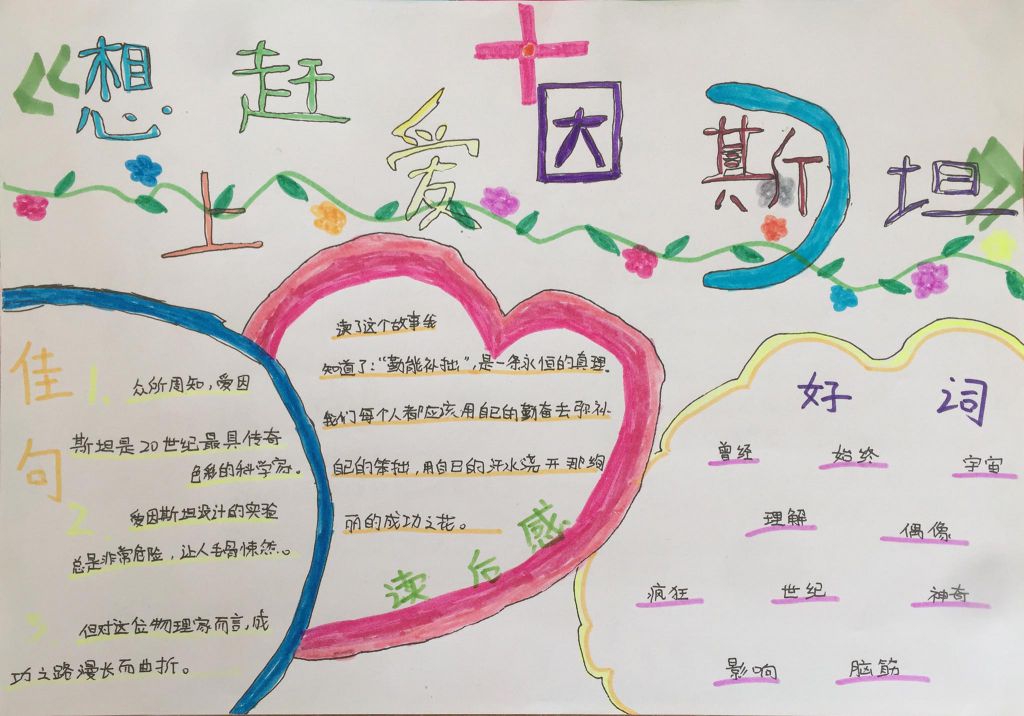 《想赶上爱因斯坦》
佳句
1. 众所周知，爱因
斯坦是20世纪最具传奇
色彩的科学家。
2. 爱因斯坦设计的实验
总是非常危险，让人毛骨悚然。
3 但对这位物理家而言，成
功之路漫长而曲折。
读了这个故事我
知道了："勤能补拙"，是一条永恒的真理。
我们每个人都应该用自己的勤奋去弥补
自己的笨拙，用自己的汗水浇开那绚
丽的成功之花。
读后感
好词
曾经 始终 宇宙
理解 偶像
疯狂 世纪 神奇
影响 脑筋